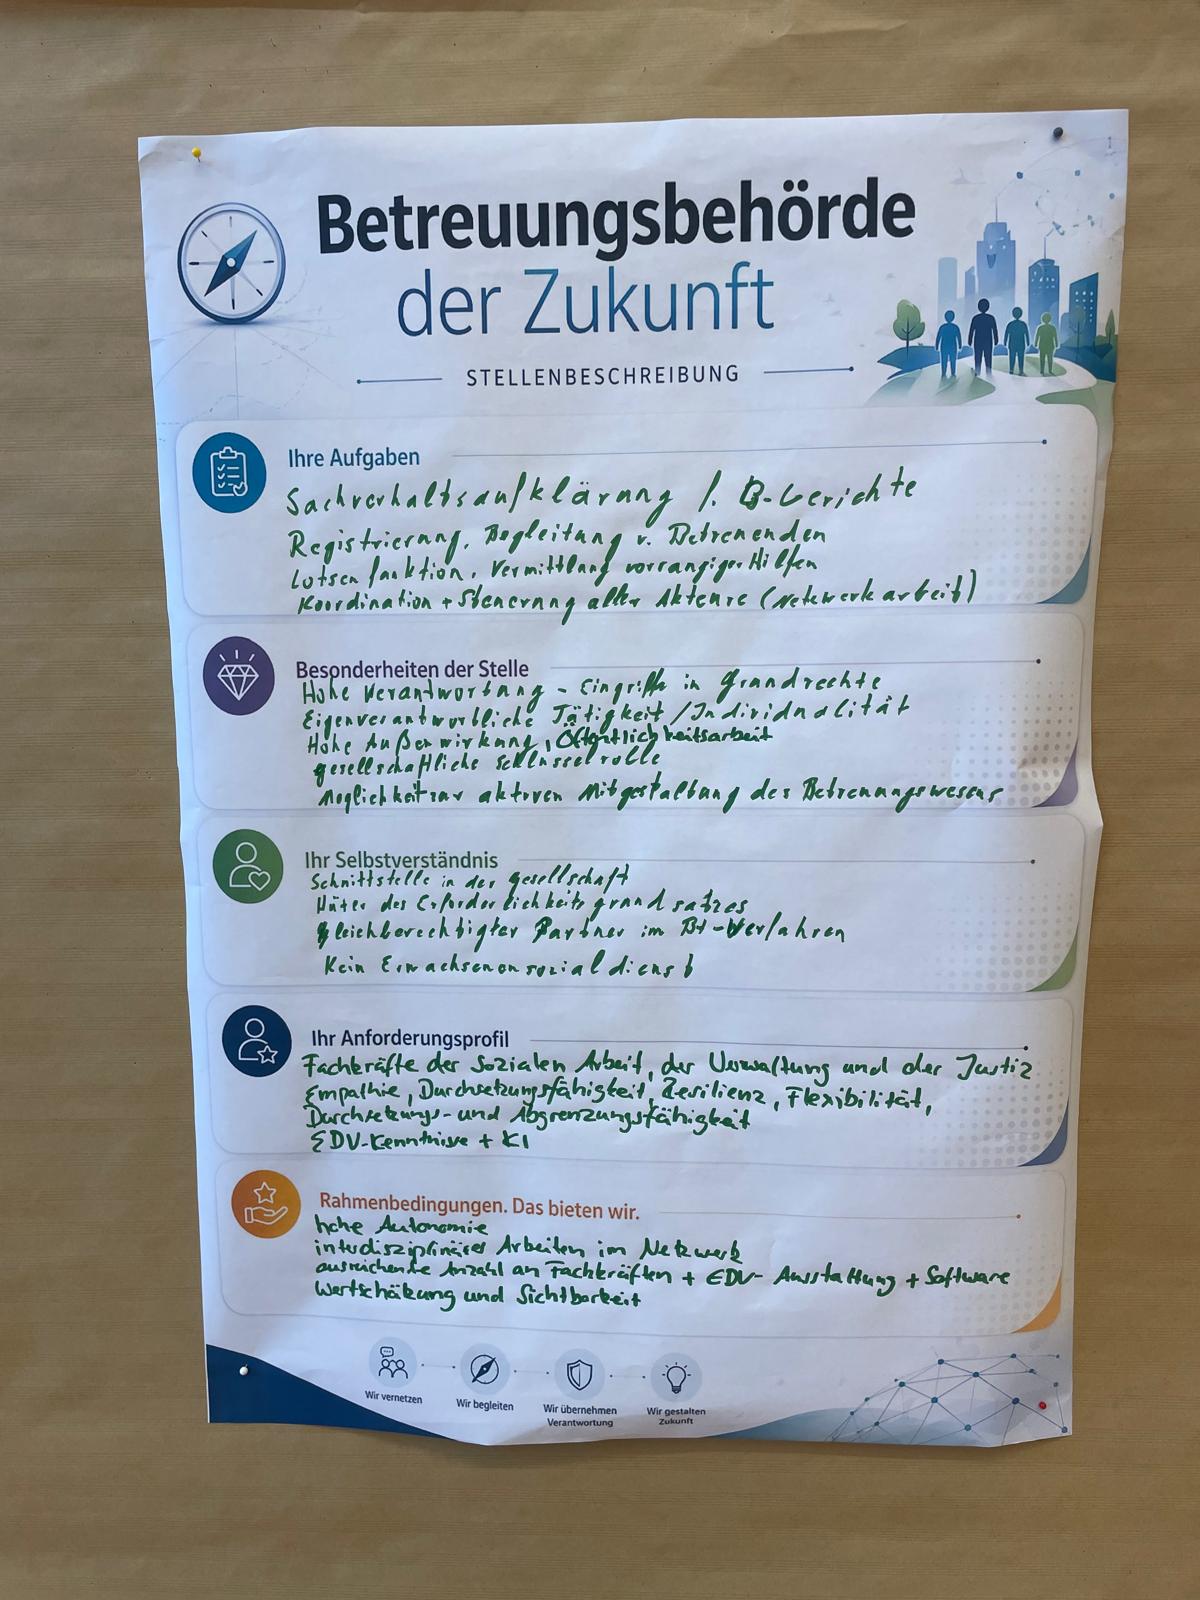 Betreuungsbehörde
der Zukunft
STELLENBESCHREIBUNG
Ihre Aufgaben
Sachverhaltsaufklärung f. B-Gerichte
Registrierung, Begleitung v. Betreuenden
Lotsenfunktion, Vermittlung vorrangiger Hilfen
Koordination + Steuerung aller Akteure (Netzwerkarbeit)
Besonderheiten der Stelle
Hohe Verantwortung - Eingriffe in Grundrechte
Eigenverantwortliche Tätigkeit / Individualität
Hohe Außenwirkung, Öffentlichkeitsarbeit
gesellschaftliche Schlüsselrolle
Möglichkeit zur aktiven Mitgestaltung des Betreuungswesens
Ihr Selbstverständnis
Schnittstelle in der Gesellschaft
Hüter des Erforderlichkeitsgrundsatzes
gleichberechtigter Partner im Bt-Verfahren
Kein Erwachsenensozialdienst
Ihr Anforderungsprofil
Fachkräfte der Sozialen Arbeit, der Verwaltung und der Justiz
Empathie, Durchsetzungsfähigkeit, Resilienz, Flexibilität,
Durchsetzungs- und Abgrenzungsfähigkeit
EDV-Kenntnisse + KI
Rahmenbedingungen. Das bieten wir.
hohe Autonomie
interdisziplinäres Arbeiten im Netzwerk
ausreichende Anzahl an Fachkräften + EDV- Ausstattung + Software
Wertschätzung und Sichtbarkeit
Wir vernetzen
Wir begleiten
Wir übernehmen
Verantwortung
Wir gestalten
Zukunft